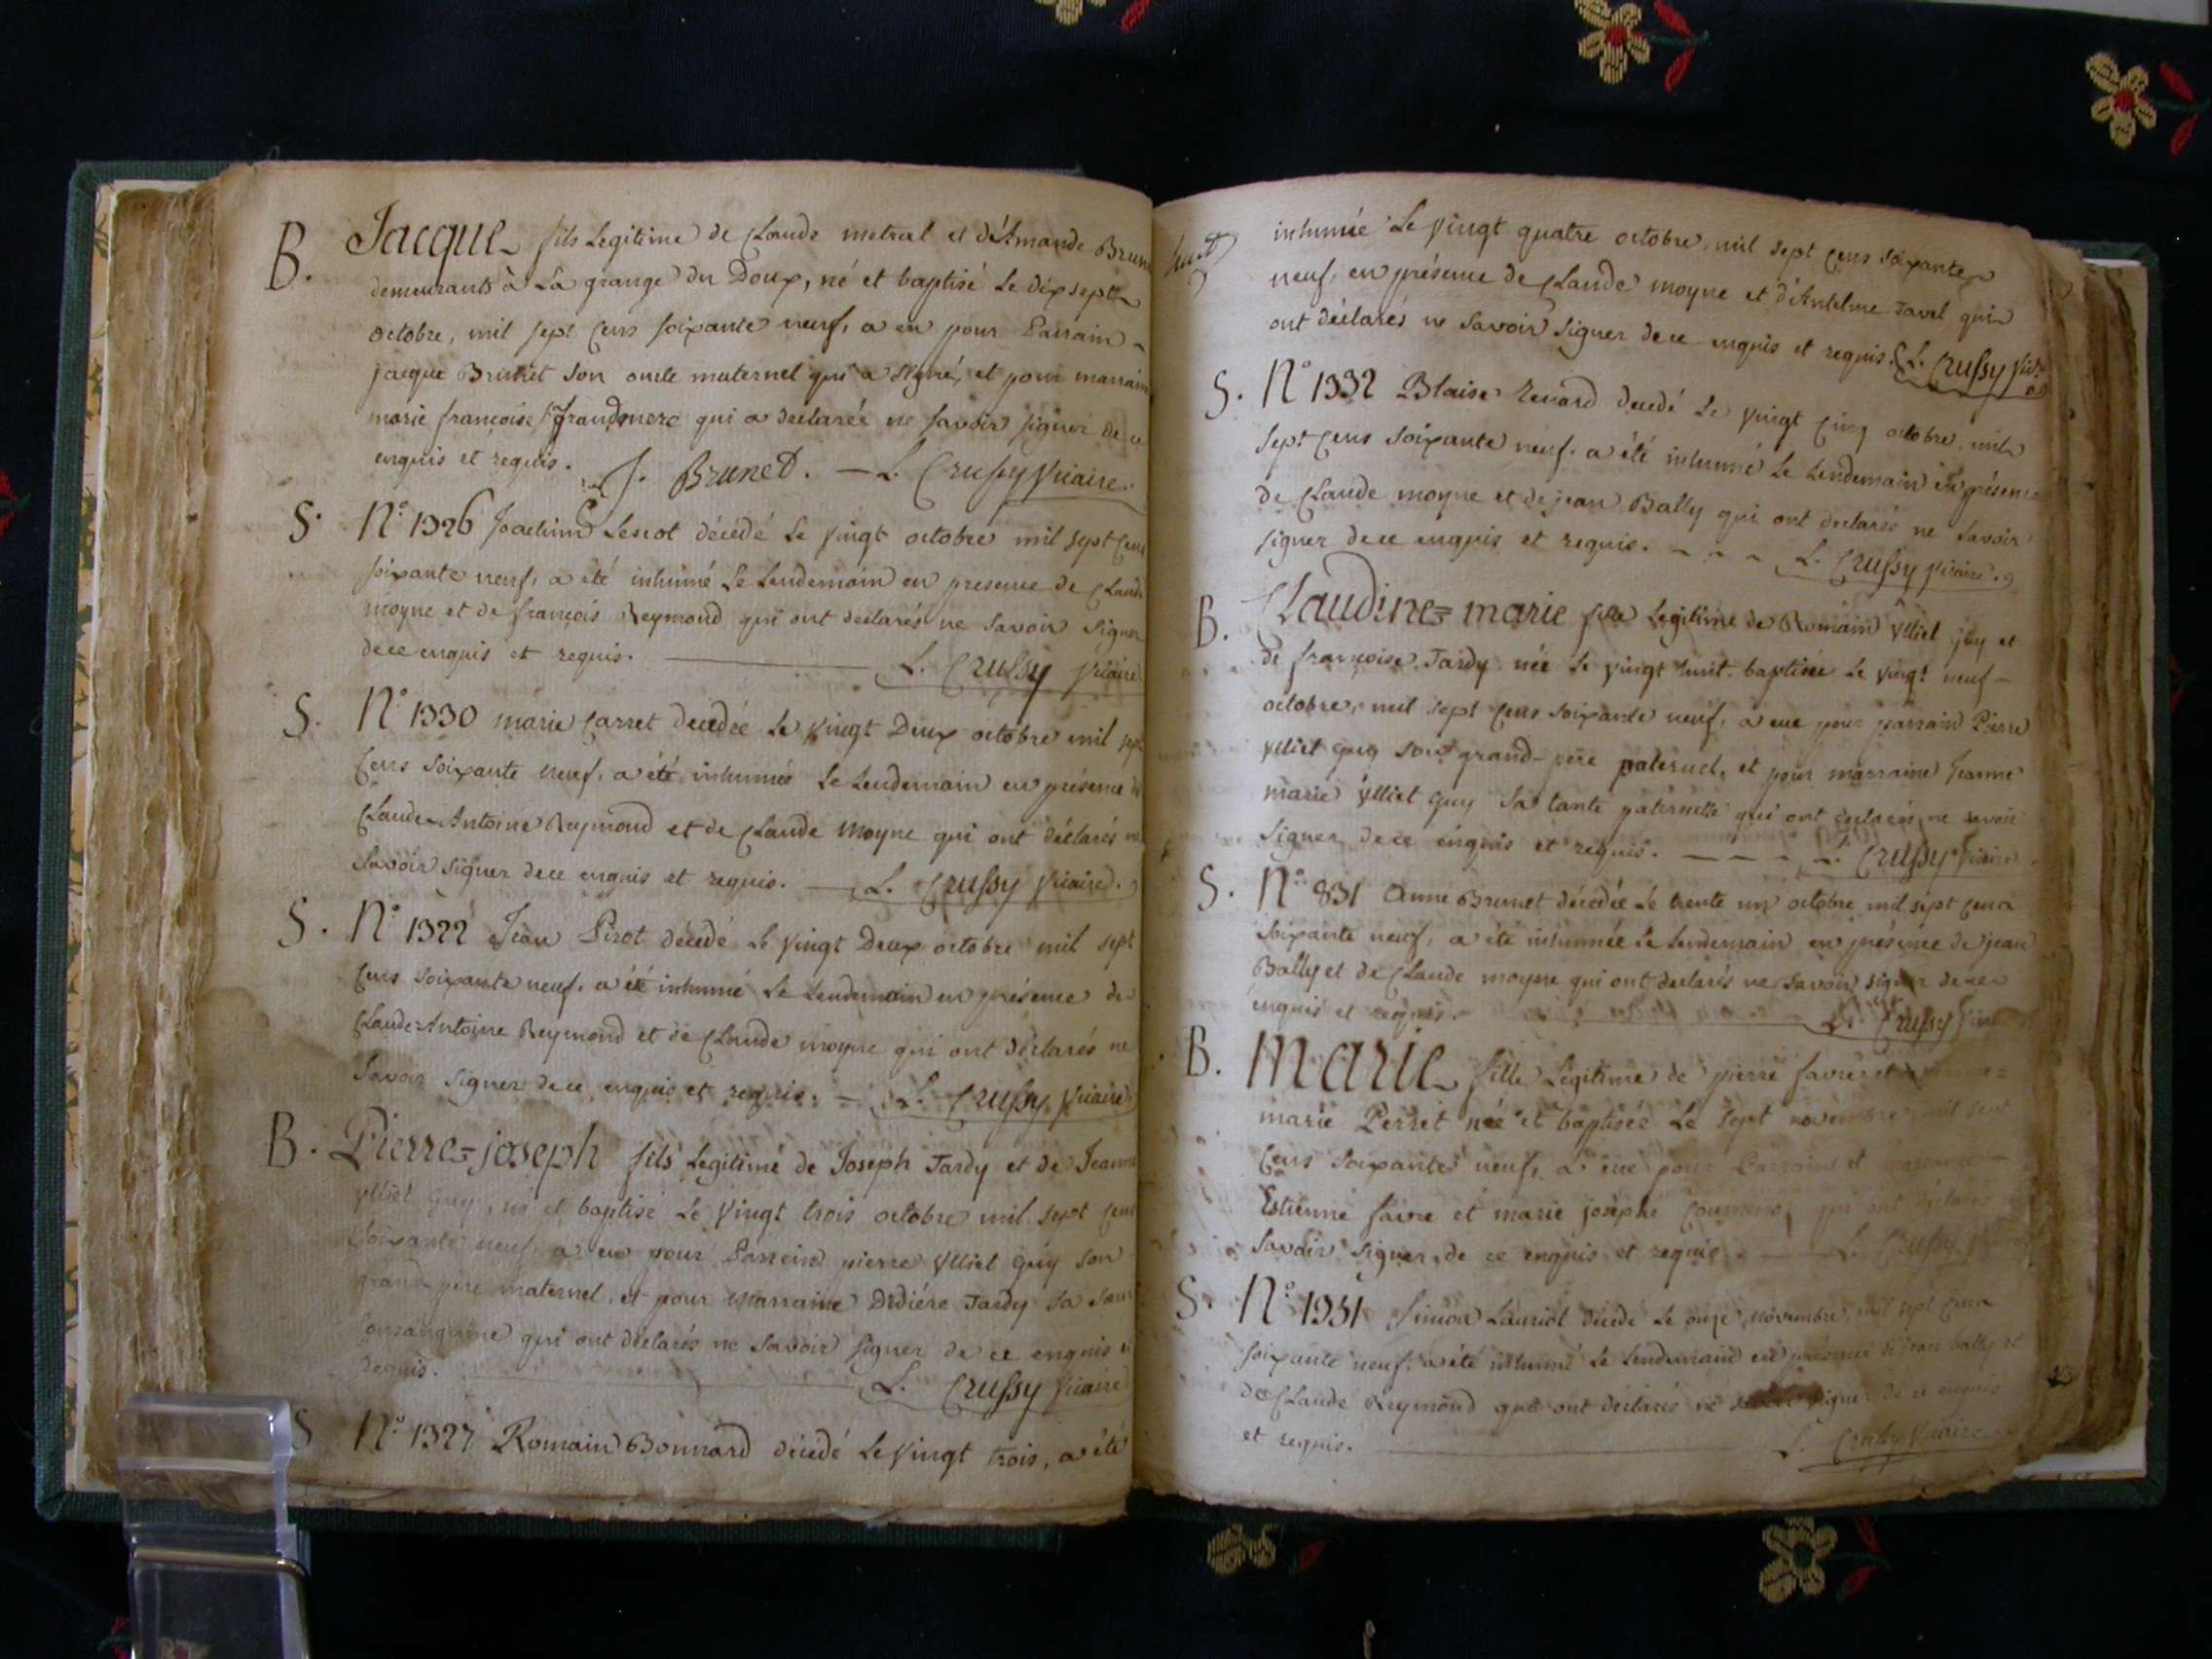 B. Jacque fils Legitime de Claude metral et d'Amande Brun
demeurants à La grange du Doux, né et baptisé Le dix sept
octobre, mil sept cens soixante neuf, a eu pour Parrain
jacque Brunet son oncle maternel qui a signé, et pour marraine
marie françoise qui a declarée ne savoir signer de ce
enquis et requis. J. Brunet. — L. Crussy Vicaire.
S. N.º 1326 Joachim Lescot décédé Le vingt octobre mil sept cens
soixante neuf, a été inhumé Le Lendemain en presence de Claude
moyne et de françois Reymond qui ont declarés ne savoir signer
de ce enquis et requis. — L. Crussy Vicaire
S. N.º 1330 marie Carret decedée Le vingt Deux octobre mil sept
Cens soixante neuf, a été inhumée Le Lendemain en présence de
Claude-Antoine Reymond et de Claude moyne qui ont déclarés ne
savoir signer de ce enquis et requis. — L. Crussy Vicaire.
S. N.º 1322 Jean Pirot décédé Le vingt Deux octobre mil sept
Cens soixante neuf, a été inhumé Le Lendemain en présence de
Claude-Antoine Reymond et de Claude moyne qui ont déclarés ne
savoir signer de ce enquis et requis. — L. Crussy, Vicaire
B. Pierre=joseph fils Legitime de Joseph Tardy et de Jeanne
ylliet Guy, né et baptisé Le vingt trois octobre mil sept cens
soixante neuf, a eu pour Parrein pierre ylliet Guy son
grand-pere maternel, et pour marraine Didiére Tardy sa sœur
consanguine qui ont déclarés ne savoir signer de ce enquis et
requis. — L. Crussy Vicaire
S N.º 1327 Romain Bonnard décédé Le vingt trois, a été
inhumé Le vingt quatre octobre, mil sept cens soixante
neuf, en présence de Claude moyne et d'Antelme Tavel qui
ont déclarés ne savoir signer de ce enquis et requis. L. Crussy Vic.re
S. N.º 1332 Blaise Renard decedé Le vingt cinq octobre, mil
sept cens soixante neuf, a été inhumé Le Lendemain en présence
de Claude moyne et de jean Bally qui ont declarés ne savoir
signer de ce enquis et requis. - - - L. Crussy Vicaire.
B. Claudine=marie fille Legitime de Romain ylliet guy et
de françoise Tardy née Le vingt huit, baptisée Le vingt neuf
octobre, mil sept cens soixante neuf, a eue pour parrain Pierre
ylliet guy son grand-pere paternel, et pour marraine Jeanne
marie ylliet guy sa tante paternelle qui ont declarés ne savoir
signer de ce enquis et requis. — — - L. Crussy Vicaire.
S. N.º 831 Anne Brunet décédée Le trente un octobre mil sept cens
soixante neuf, a été inhumée Le Lendemain en présence de jean
Bally et de Claude moyne qui ont declarés ne savoir signer de ce
enquis et requis. — L. Crussy Vicaire
B. Marie fille Légitime de pierre favre et
marie Perret née et baptisée Le sept novembre mil sept
cens soixante neuf, a eue pour Parrain et marraine
Estienne favre et marie josephe qui ont déclarés
savoir signer de ce enquis et requis. — L. Crussy
S. N.º 1331 Simon Lauriol décédé Le onze novembre mil sept cens
soixante neuf, a été inhumé Le Lendemain en présence de jean bally et
de Claude Reymond qui ont déclarés ne savoir signer de ce enquis
et requis. — L. Crussy Vicaire